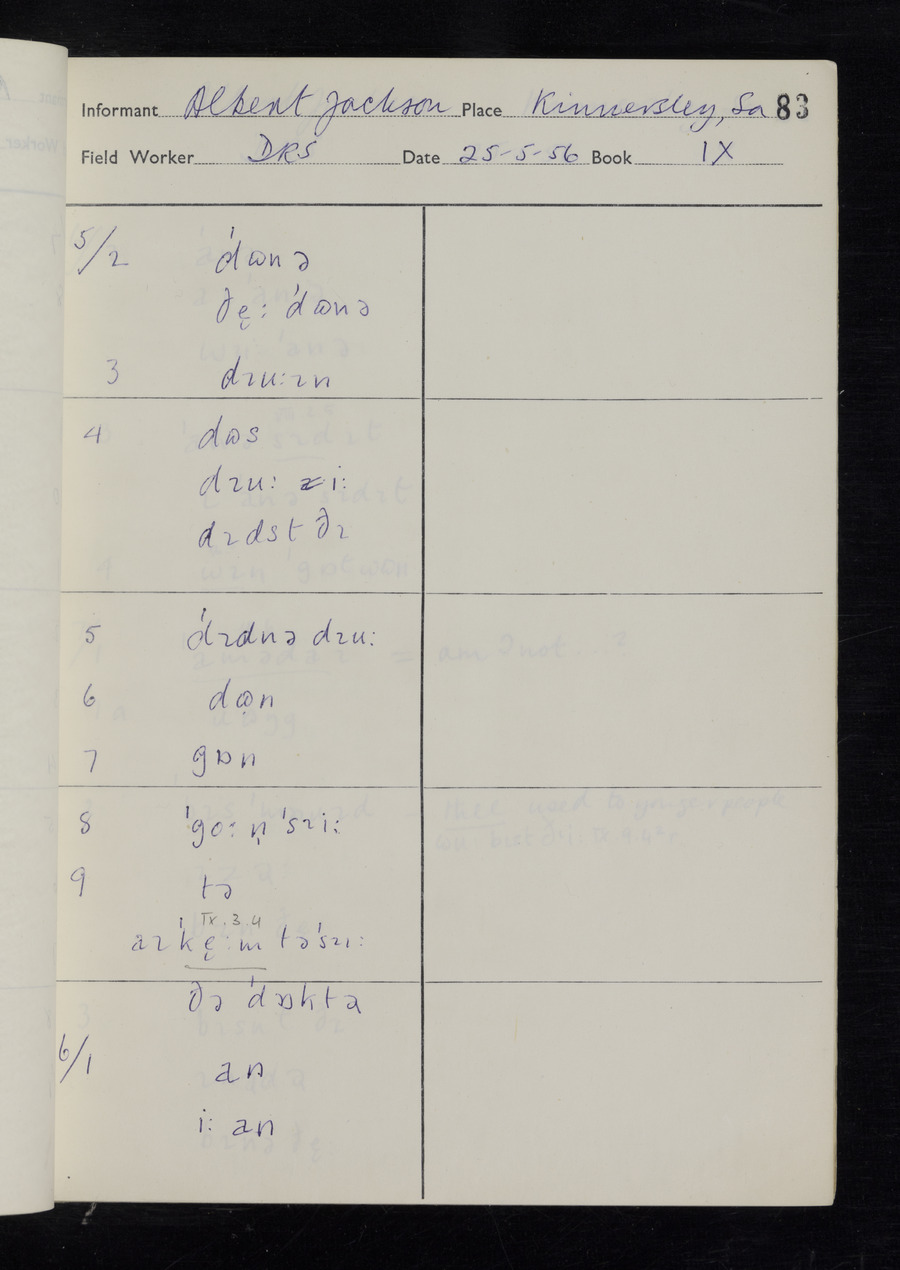 Informant Albert Jackson Place Kinnersley, Sa 83
Field Worker DRS Date 25-5-56 Book IX
5/2 ˈdɷnə
ðę: ˈdɷnə
3 dɪu:ɪn
4 dɷs
dɪu: zi:
dɪdst ðɪ
5 ˈdɪdnə dɪu:
6 dɷ̣n
7 gɒn
8 ˈgo: ṇ ˈsɪi:
9 tə
IX.3.4
aɪˈkę:m təˈsɪi:
ðə ˈdɒktə
6/1 an
i: an